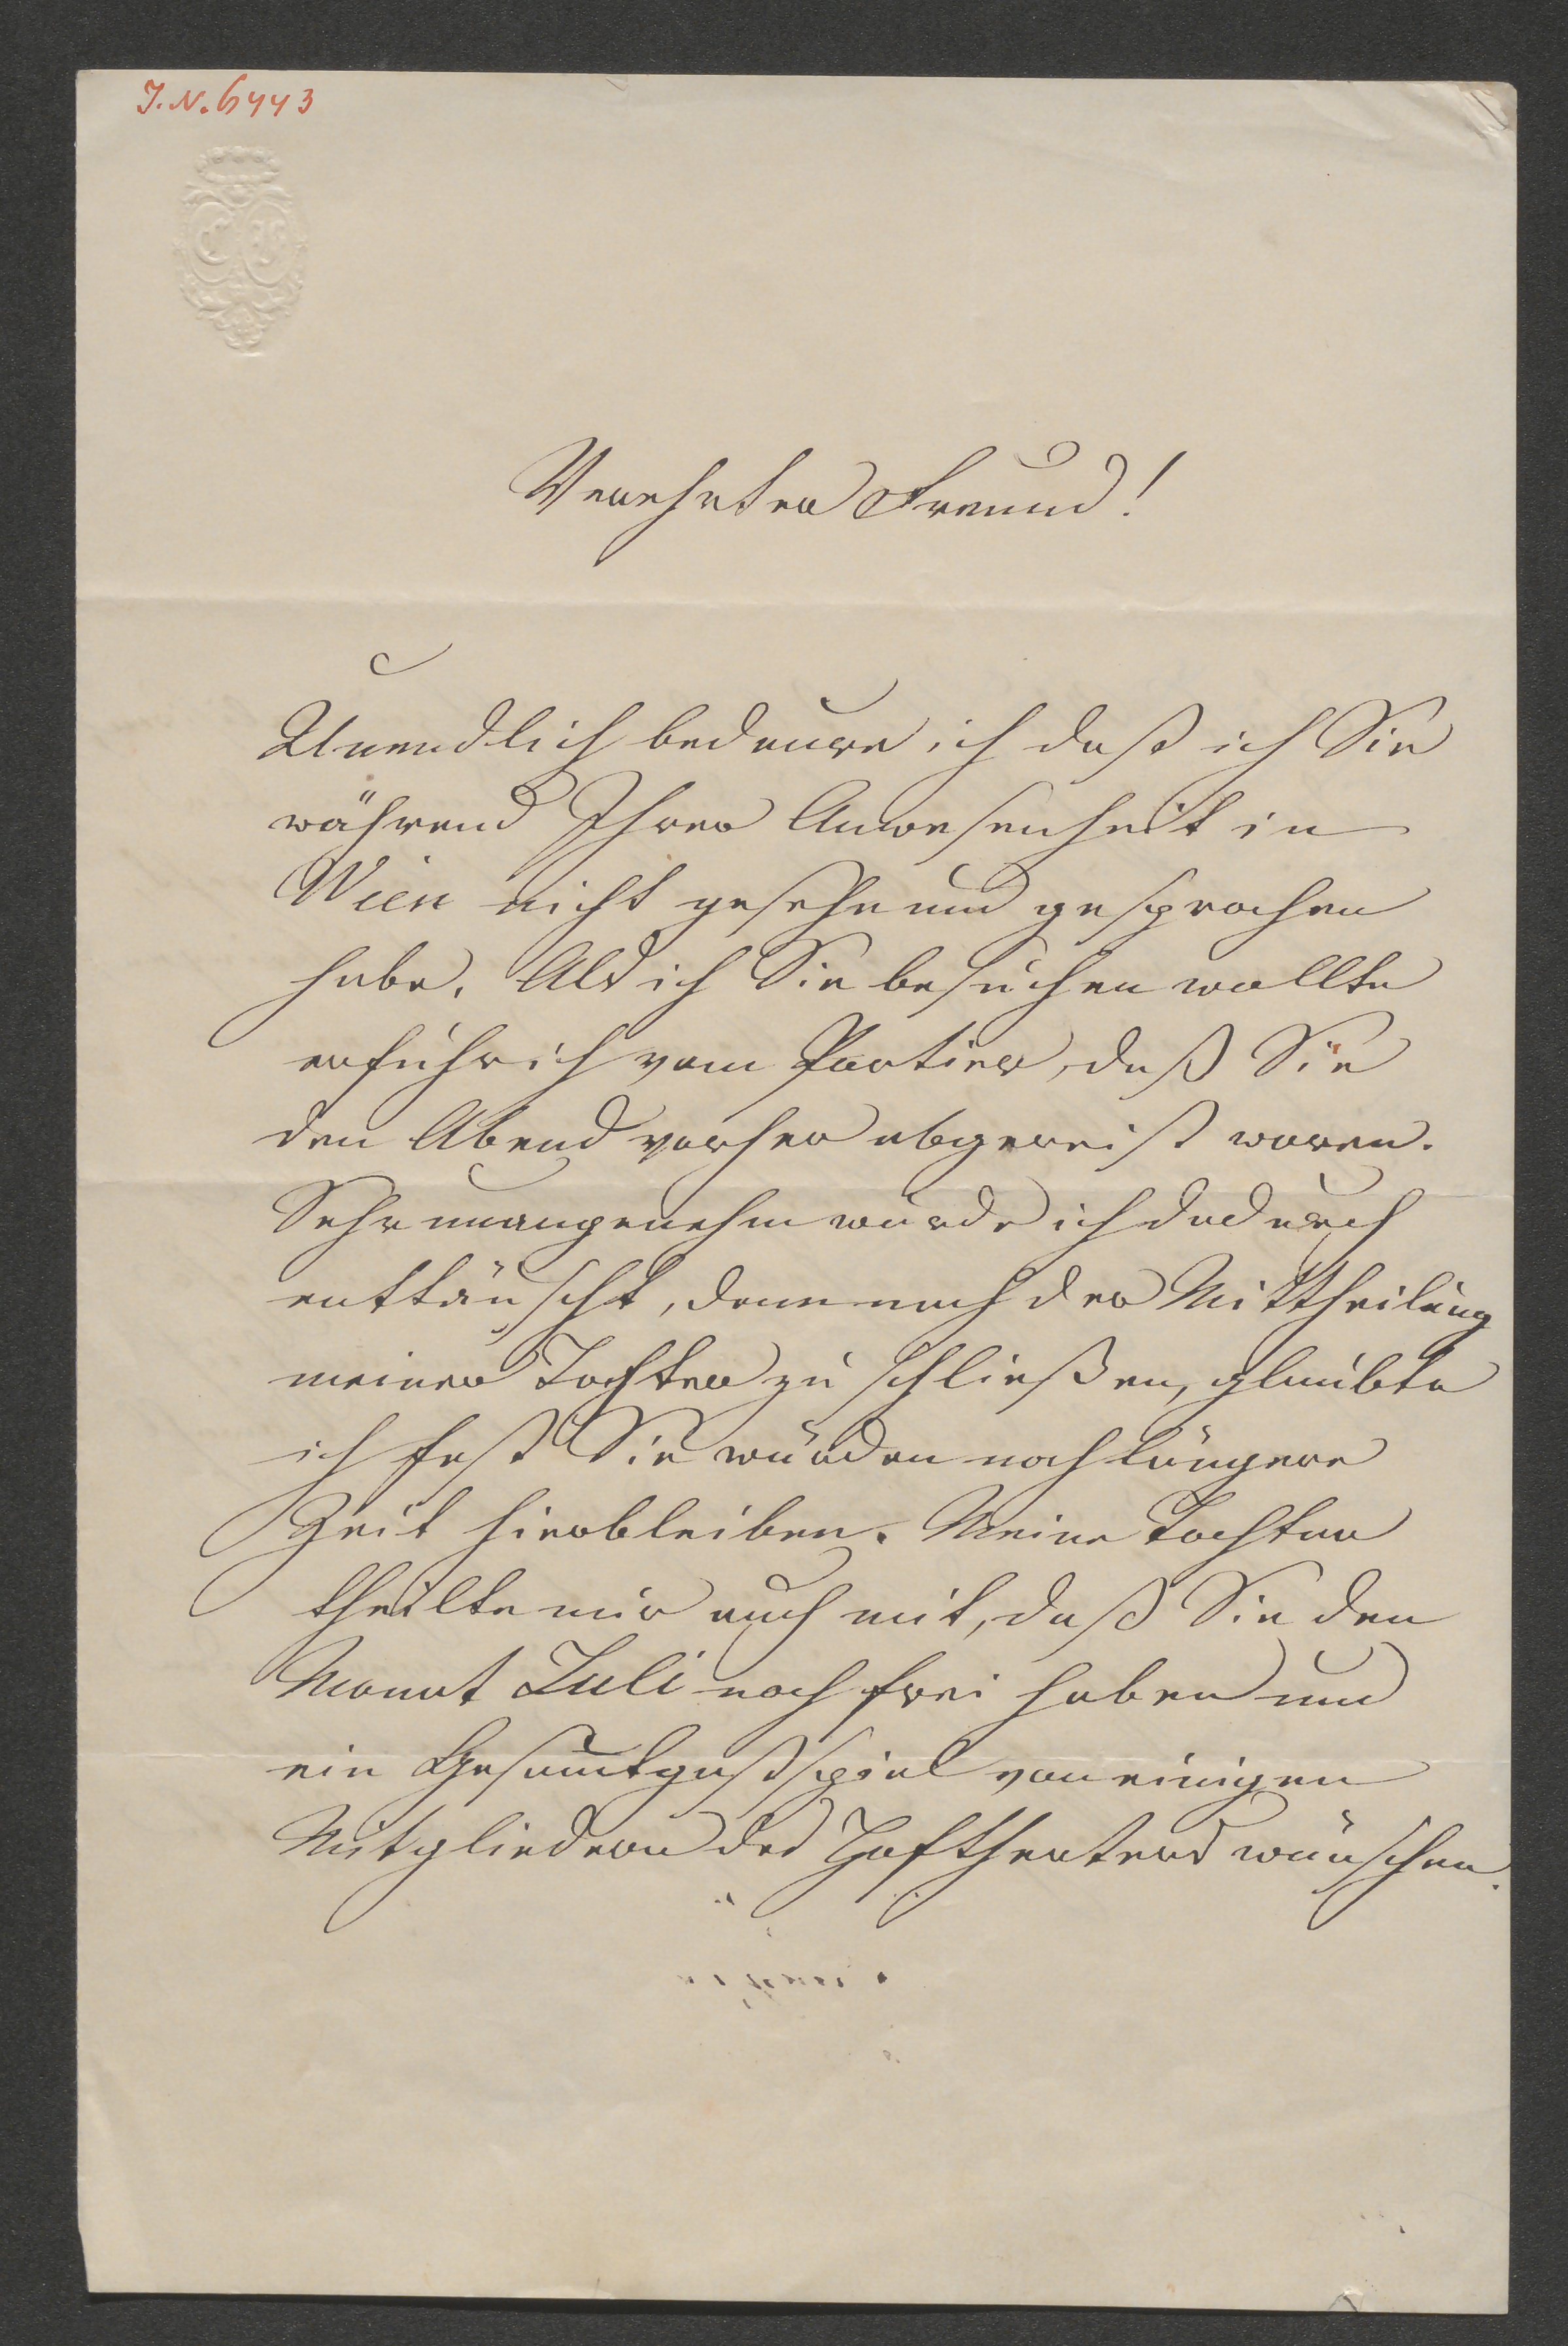 J.N. 6443
Verehrter Freund!
Unendlich bedaure ich daß ich Sie
während Ihrer Anwesenheit in
Wien nicht gesehn und gesprochen
habe. Als ich Sie besuchen wollte
erfuhr ich vom Portier, daß Sie
den Abend vorher abgereist waren.
Sehr unangenehm wurde ich dadurch
enttäuscht, denn nach der Mittheilung
meiner Tochter zu schließen, glaubte
ich fest Sie würden noch längere
Zeit hierbleiben. Meine Tochter
theilte mir auch mit, daß Sie den
Monat Juli noch frei haben und
ein Gesammtgastspiel von einigen
Mitgliedern des Hoftheaters wünschen.